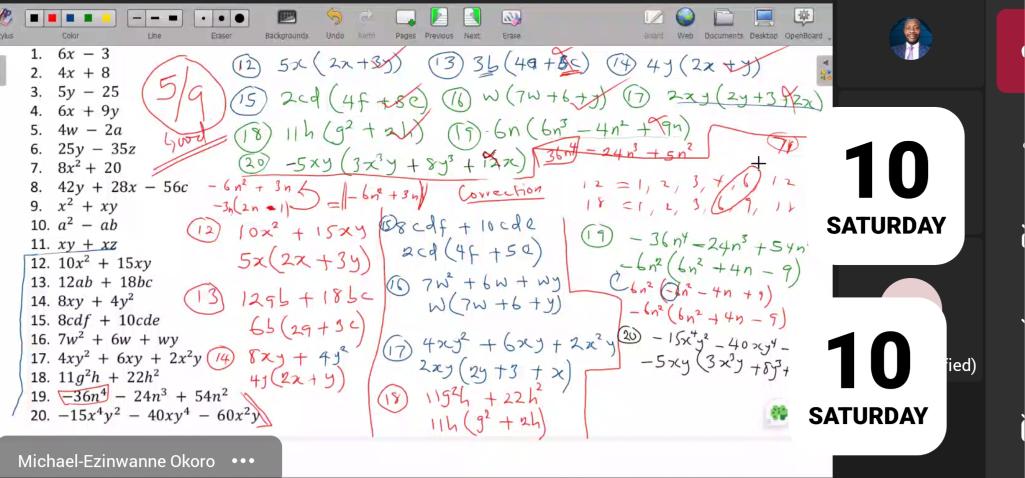 Color
Line
Eraser
Backgrounds
Undo
Redo
Pages
Previous
Next
Erase
Board
Web
Documents
Desktop
OpenBoard
1. 6x − 3
2. 4x + 8
3. 5y − 25
4. 6x + 9y
5. 4w − 2a
6. 25y − 35z
7. 8x² + 20
8. 42y + 28x − 56c
9. x² + xy
10. a² − ab
11. xy + xz
12. 10x² + 15xy
13. 12ab + 18bc
14. 8xy + 4y²
15. 8cdf + 10cde
16. 7w² + 6w + wy
17. 4xy² + 6xy + 2x²y
18. 11g²h + 22h²
19. −36n⁴ − 24n³ + 54n²
20. −15x⁴y² − 40xy⁴ − 60x²y
5/9
Good
12 5x(2x+3y) 13 3b(4a+ 14 4y(2x+y)
15 2cd(4f+5e) 16 w(7w+6+y) 17 2xy(2y+3
18 11h(g²+2h) 19 -6n(6n³−4n²+9n)
20 -5xy(3x³y+8y³+12x)
36n⁴−24n³+5n²
-6n²+3n
-3n(2n-1) = -6n²+3n
Correction
12=1, 2, 3, 4, 6, 12
18=1, 2, 3, 6, 9, 18
12 10x²+15xy
5x(2x+3y)
13 12ab+18bc
6b(2a+3c)
14 8xy+4y²
4y(2x+y)
15 8cdf+10cde
2cd(4f+5e)
16 7w²+6w+wy
w(7w+6+y)
17 4xy²+6xy+2x²y
2xy(2y+3+x)
18 11g²h+22h²
11h(g²+2h)
19 -36n⁴−24n³+54n
-6n²(6n²+4n−9)
6n²(-6n²−4n+9)
-6n²(6n²+4n−9)
20 -15x⁴y²−40xy⁴−
-5xy(3x³y+8y³+
10
SATURDAY
10
SATURDAY
ied)
Michael-Ezinwanne Okoro